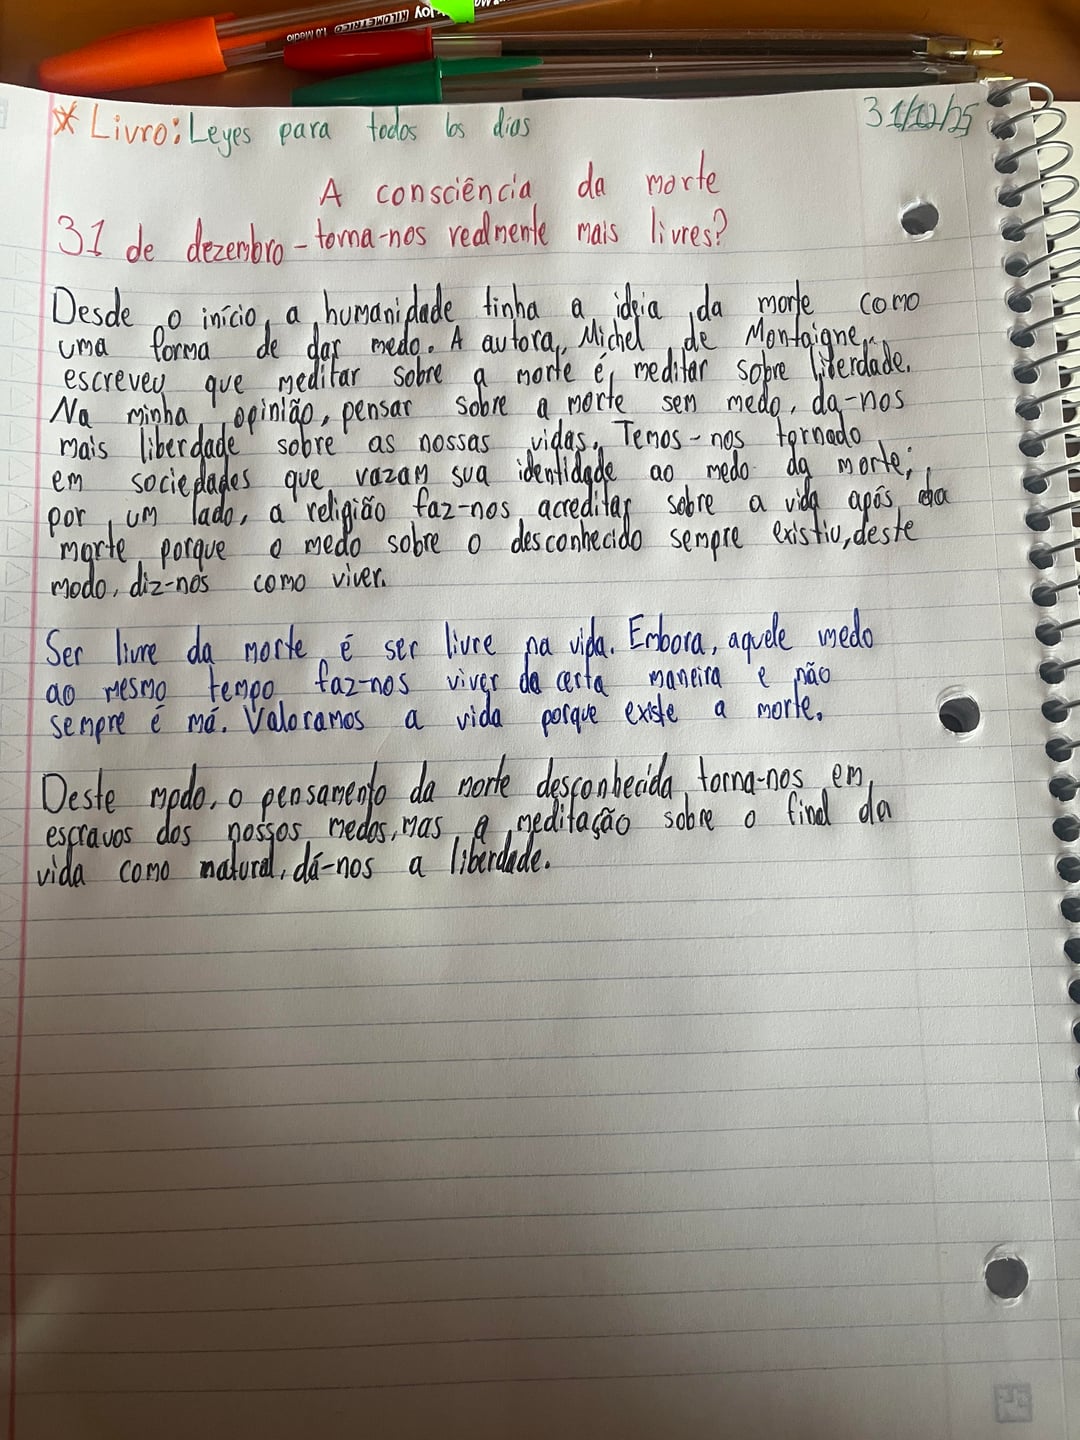 KILOMETRICO
1.0 Medio
Joy
* Livro: Leyes para todos los días
31/12/25
A consciência da morte
31 de dezembro - torna-nos realmente mais livres?
Desde o início, a humanidade tinha a ideia da morte como
uma forma de dar medo. A autora, Michel de Montaigne,
escreveu que meditar sobre a morte é, meditar sobre liberdade.
Na minha opinião, pensar sobre a morte sem medo, da-nos
mais liberdade sobre as nossas vidas. Temos-nos tornado
em sociedades que vazam sua identidade ao medo da morte;
por um lado, a religião faz-nos acreditar sobre a vida após da
morte porque o medo sobre o desconhecido sempre existiu, deste
modo, diz-nos como viver.
Ser livre da morte é ser livre na vida. Embora, aquele medo
ao mesmo tempo faz-nos viver da certa maneira e não
sempre é má. Valoramos a vida porque existe a morte.
Deste modo, o pensamento da morte desconhecida torna-nos em
escravos dos nossos medos, mas a meditação sobre o final da
vida como natural, dá-nos a liberdade.